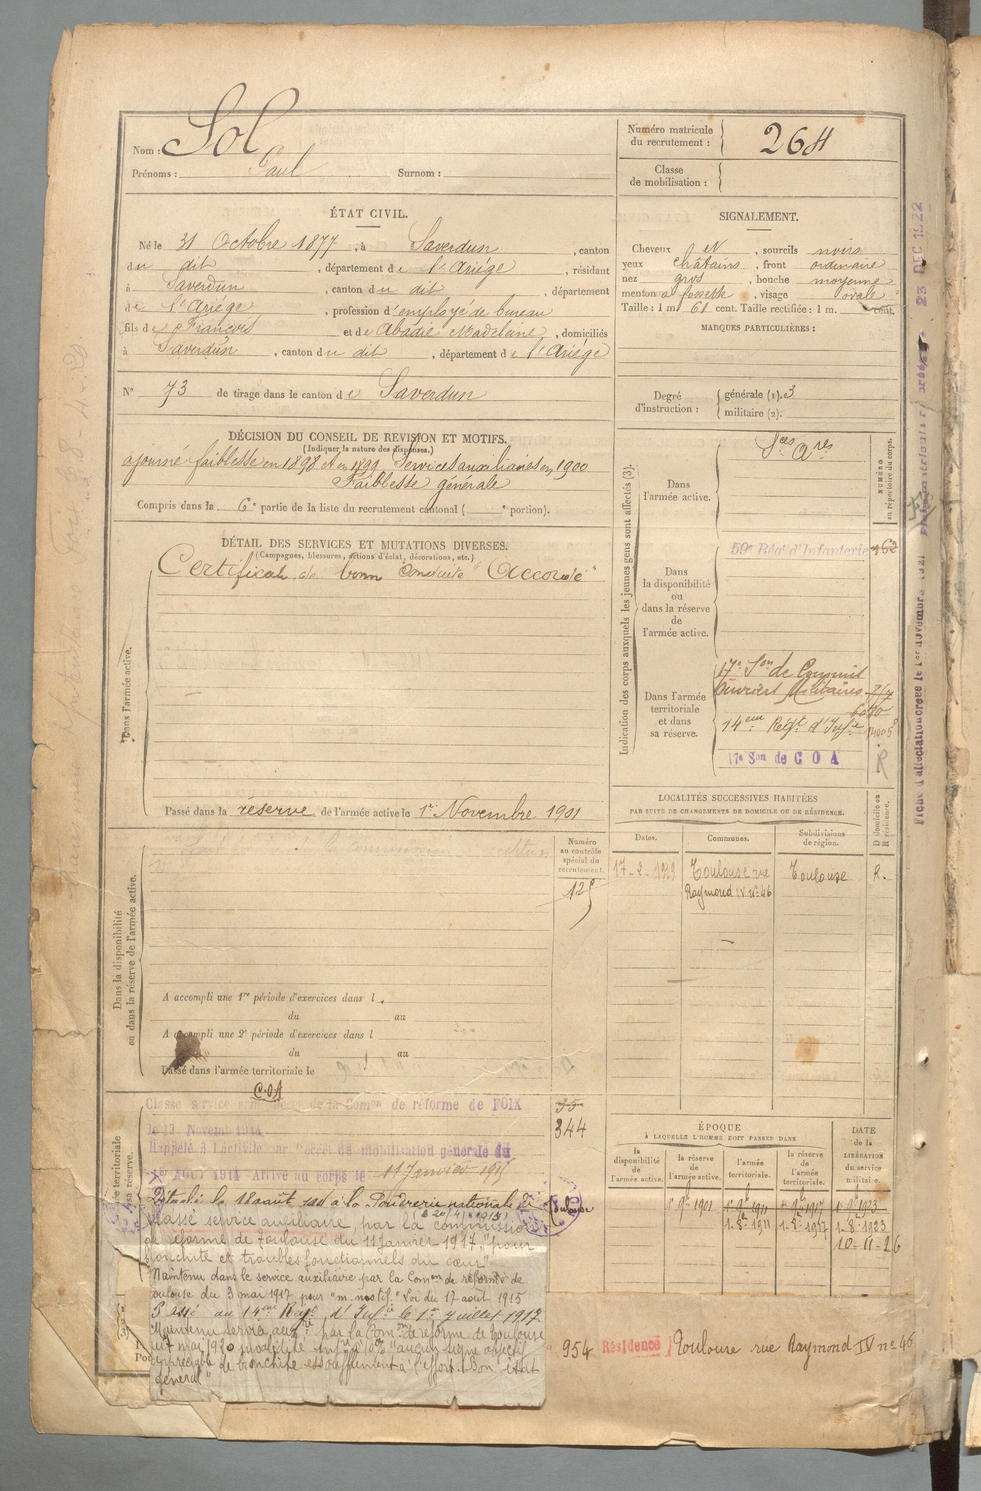 Nom : Sol
Prénoms : Paul Surnom :
Numéro matricule du recrutement : 264
Classe de mobilisation :
ÉTAT CIVIL.
Né le 31 Octobre 1877, à Saverdun, canton
du dit, département de l'Ariége, résidant
à Saverdun, canton du dit, département
de l'Ariége, profession d'employé de bureau
fils de François et de Abadie Madelaine, domiciliés
à Saverdun, canton du dit, département de l'Ariége
N° 73 de tirage dans le canton de Saverdun
SIGNALEMENT.
Cheveux et, sourcils noirs
yeux châtains, front ordinaire
nez gros, bouche moyenne
menton à fossette, visage ovale
Taille : 1 m 61 cent. Taille rectifiée : 1 m. cent.
MARQUES PARTICULIÈRES :
Degré d'instruction : générale (1). 3
militaire (2).
DÉCISION DU CONSEIL DE REVISION ET MOTIFS.
(Indiquer la nature des dispenses.)
ajourné faiblesse en 1898 et en 1899 Services auxiliaires en 1900
Faiblesse générale
Compris dans la 6e partie de la liste du recrutement cantonal ( e portion).
DÉTAIL DES SERVICES ET MUTATIONS DIVERSES.
(Campagnes, blessures, actions d'éclat, décorations, etc.)
Certificat de bonne conduite "Accordé"
Dans l'armée active.
Passé dans la réserve de l'armée active le 1er Novembre 1901
Indication des corps auxquels les jeunes gens sont affectés (3).
NUMÉRO au répertoire du corps.
Dans l'armée active.
Sces Ares
Dans la disponibilité ou dans la réserve de l'armée active.
59e Régt d'Infanterie
Dans l'armée territoriale et dans sa réserve.
17e Son de Commis
Ouvriers Militaires
14eme Régt d'Infie
17e Son de C O A
R
LOCALITÉS SUCCESSIVES HABITÉES
PAR SUITE DE CHANGEMENTS DE DOMICILE OU DE RÉSIDENCE.
Dates. Communes. Subdivisions de région. D domicile ou R résidence.
17-2-1919 Toulouse rue Raymond IV n° 46 Toulouse R.
Dans la disponibilité ou dans la réserve de l'armée active.
Numéro au contrôle spécial du recrutement.
A accompli une 1re période d'exercices dans l
du au
A accompli une 2e période d'exercices dans l
du au
Passé dans l'armée territoriale le
C.O.A
Classé service auxiliaire de la Comon de réforme de FOIX
le 13 Novemb 1914
Rappelé à l'activité par Décret de mobilisation générale du
1er AOUT 1914 - Arrivé au corps le 11 Janvier 1915
344
Détaché le 18 août 1915 à la Poudrerie nationale de Toulouse
classé service auxiliaire, par la commission
de réforme de Toulouse du 11 Janvier 1917, "pour
bronchite et troubles fonctionnels du cœur"
Maintenu dans le service auxiliaire par la Comon de réforme de
Toulouse du 3 mai 1917 pour "m. motif" Loi du 17 août 1915
Passé au 14eme Régt d'Infie le 1er Juillet 1917.
Maintenu service auxre par la Comon de réforme de Toulouse
mai 1920 invalidité infre à 10% "aucun signe objectif
appréciable de bronchite essoufflement à l'effort. Bon état
général"
ÉPOQUE
À LAQUELLE L'HOMME DOIT PASSER DANS
la disponibilité de l'armée active. la réserve de l'armée active. l'armée territoriale. la réserve de l'armée territoriale. DATE de la LIBÉRATION du service militaire.
1er 9bre 1901 1er 9bre 1911 1er 9bre 1917 1er 9bre 1923
1-8-1911 1-8-1917 1-8-1923
10-11-26
954 Résidence Toulouse rue Raymond IV n° 46